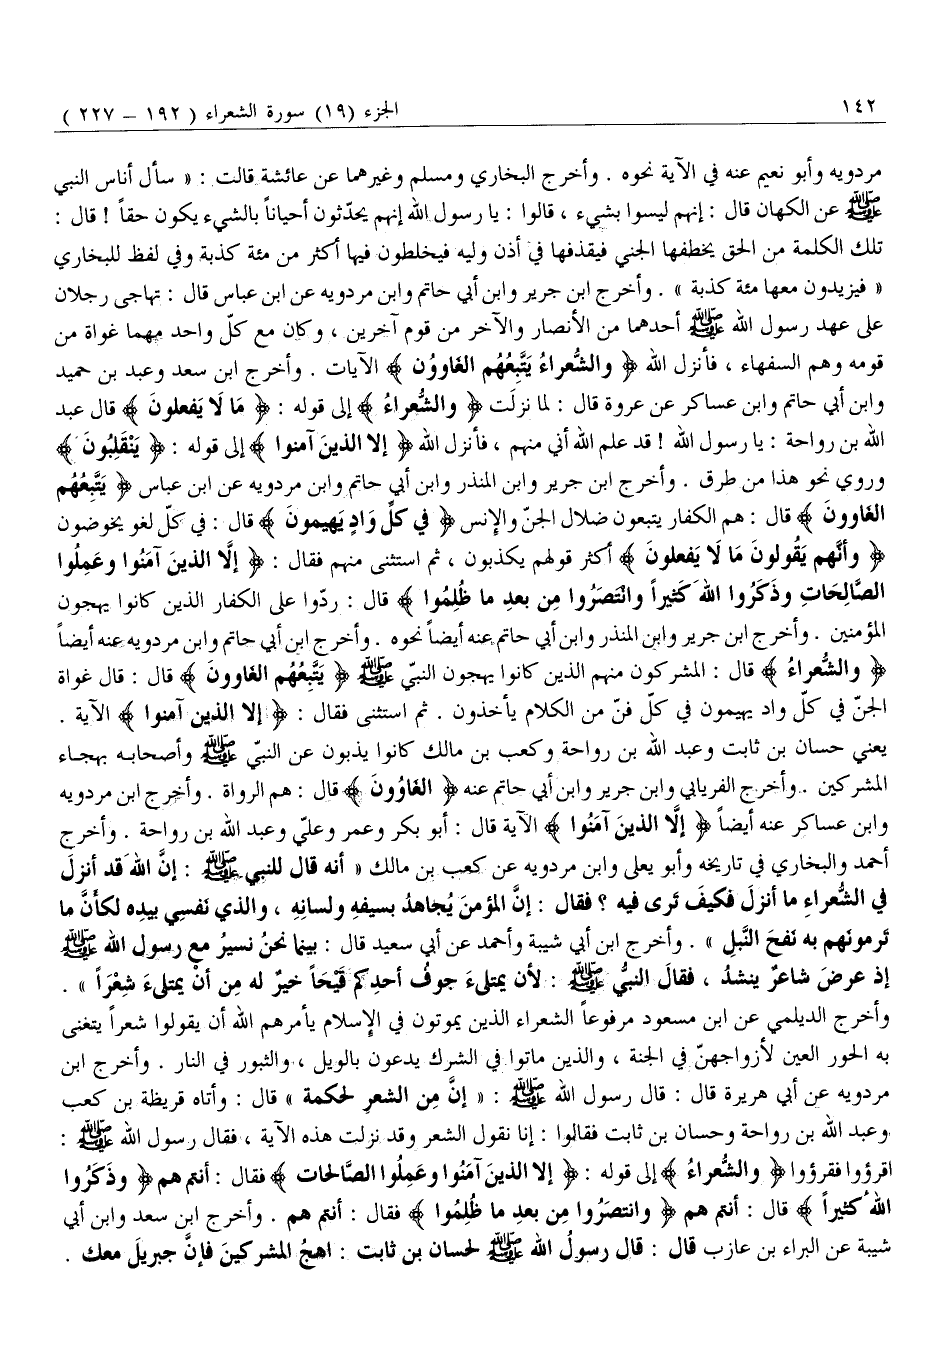 ١٤٢ الجزء (١٩) سورة الشعراء ( ١٩٢ – ٢٢٧ )
مردويه وأبو نعيم عنه في الآية نحوه . وأخرج البخاري ومسلم وغيرهما عن عائشة قالت : « سأل أناس النبي
ﷺ عن الكهان قال : إنهم ليسوا بشيء ، قالوا : يا رسول الله إنهم يحدّثون أحياناً بالشيء يكون حقاً ! قال :
تلك الكلمة من الحق يخطفها الجني فيقذفها في أذن وليه فيخلطون فيها أكثر من مئة كذبة وفي لفظ للبخاري
« فيزيدون معها مئة كذبة » . وأخرج ابن جرير وابن أبي حاتم وابن مردويه عن ابن عباس قال : تهاجى رجلان
على عهد رسول الله ﷺ أحدهما من الأنصار والآخر من قوم آخرين ، وكان مع كلّ واحد مهما غواة من
قومه وهم السفهاء ، فأنزل الله ﴿ والشُّعراءُ يَتَّبعُهُم الغَاوُون ﴾ الآيات . وأخرج ابن سعد وعبد بن حميد
وابن أبي حاتم وابن عساكر عن عروة قال : لما نزلَت ﴿ والشُّعراءُ ﴾ إلى قوله : ﴿ مَا لَا يَفعلونَ ﴾ قال عبد
الله بن رواحة : يا رسول الله ! قد علم الله أني منهم ، فأنزل الله ﴿ إلا الذينَ آمنوا ﴾ إلى قوله : ﴿ يَنْقَلِبُونَ ﴾
وروي نحو هذا من طرق . وأخرج ابن جرير وابن المنذر وابن أبي حاتم وابن مردويه عن ابن عباس ﴿ يَتَّبِعُهُم
الغَاوونَ ﴾ قال : هم الكفار يتبعون ضلال الجنّ والإنس ﴿ في كلّ وَادٍ يَهيمونَ ﴾ قال : في كلّ لغو يخوضون
﴿ وأنَّهم يَقُولونَ مَا لَا يَفعلونَ ﴾ أكثر قولهم يكذبون ، ثم استثنى منهم فقال : ﴿ إلَّا الذينَ آمَنُوا وعَمِلُوا
الصَّالِحَاتِ وذَكَرُوا اللهَ كَثيراً وانْتَصَرُوا مِن بعدِ ما ظُلِمُوا ﴾ قال : ردّوا على الكفار الذين كانوا يهجون
المؤمنين . وأخرج ابن جرير وابن المنذر وابن أبي حاتم عنه أيضاً نحوه . وأخرج ابن أبي حاتم وابن مردويه عنه أيضاً
﴿ والشُّعراءُ ﴾ قال : المشركون منهم الذين كانوا يهجون النبيّ ﷺ ﴿ يَتَّبعُهُم الغاوونَ ﴾ قال : قال غواة
الجنّ في كلّ واد يهيمون في كلّ فنّ من الكلام يأخذون . ثم استثنى فقال : ﴿ إلا الذين آمنوا ﴾ الآية .
يعني حسان بن ثابت وعبد الله بن رواحة وكعب بن مالك كانوا يذبون عن النبيّ ﷺ وأصحابه بهجاء
المشركين . وأخرج الفريابي وابن جرير وابن أبي حاتم عنه ﴿ الغَاوُونَ ﴾ قال : هم الرواة . وأخرج ابن مردويه
وابن عساكر عنه أيضاً ﴿ إلَّا الذينَ آمَنُوا ﴾ الآية قال : أبو بكر وعمر وعليّ وعبد الله بن رواحة . وأخرج
أحمد والبخاري في تاريخه وأبو يعلى وابن مردويه عن كعب بن مالك « أنه قال للنبي ﷺ : إنَّ الله قد أنزلَ
في الشُّعراءِ ما أنزلَ فكيفَ تَرى فيه ؟ فقال : إنَّ المؤمنَ يُجاهدُ بسيفهِ ولسانِهِ ، والذي نَفسي بيدِه لكأنَّ ما
تَرمونَهم به نَفحَ النَّبلِ » . وأخرج ابن أبي شيبة وأحمد عن أبي سعيد قال : بينما نحنُ نسيرُ مع رسول الله ﷺ
إذ عرضَ شاعرٌ ينشدُ ، فقالَ النبيُّ ﷺ : لأن يمتلىءَ جوفُ أحدِكم قَيْحَاً خيرٌ له مِن أنْ يمتلىءَ شِعْرَاً » .
وأخرج الديلمي عن ابن مسعود مرفوعاً الشعراء الذين يموتون في الإسلام يأمرهم الله أن يقولوا شعراً يتغنى
به الحور العين لأزواجهنّ في الجنة ، والذين ماتوا في الشرك يدعون بالويل ، والثبور في النار . وأخرج ابن
مردويه عن أبي هريرة قال : قال رسول الله ﷺ : « إنَّ مِن الشعرِ لحكمة » قال : وأتاه قريظة بن كعب
وعبد الله بن رواحة وحسان بن ثابت فقالوا : إنا نقول الشعر وقد نزلت هذه الآية ، فقال رسول الله ﷺ :
اقرؤوا فقرؤوا ﴿ والشُّعراءُ ﴾ إلى قوله : ﴿ إلا الذينَ آمَنُوا وعَمِلُوا الصَّالحات ﴾ فقال : أنتم هم ﴿ وذَكَرُوا
اللهَ كثيراً ﴾ قال : أنتم هم ﴿ وانتصَرُوا مِن بعدِ ما ظُلِمُوا ﴾ فقال : أنتم هم . وأخرج ابن سعد وابن أبي
شيبة عن البراء بن عازب قال : قال رسولُ الله ﷺ لحسان بن ثابت : اهجُ المشركينَ فإنَّ جبريلَ معك .